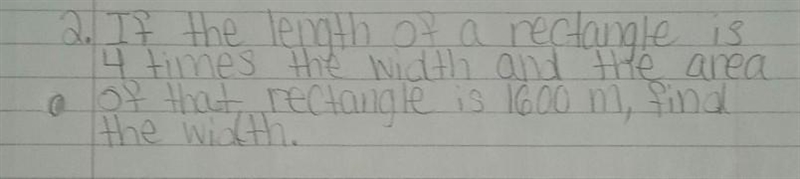 2. If the length of a rectangle is
4 times the width and the area
of that rectangle is 1600 m, find
the width.